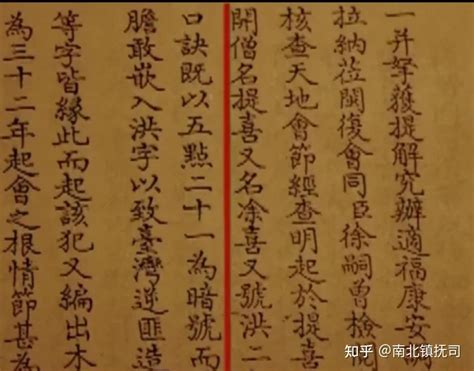 一并拏獲提解究辦適福康安
拉納莅閩復會同臣徐嗣曾檢
核查天地會節經查明起於提喜
開僧名提喜又名凃喜又號洪二
口訣既以五點二十一為暗號而
膽敢嵌入洪字以致臺灣逆匪造
等字皆緣此而起該犯又編出木
為三十二年起會之根情節甚為
知乎 @南北镇抚司